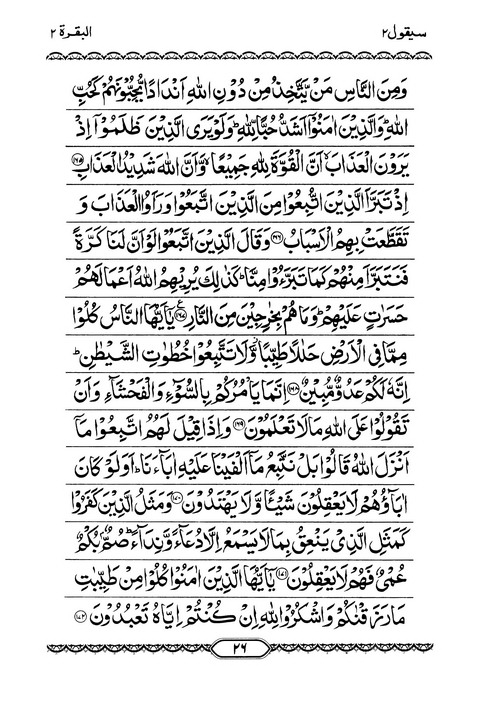 سيقول ٢
البقرة ٢
وَمِنَ النَّاسِ مَنْ يَّتَّخِذُ مِنْ دُوْنِ اللّٰهِ اَنْدَادًا يُّحِبُّوْنَهُمْ كَحُبِّ
اللّٰهِ ؕ وَالَّذِيْنَ اٰمَنُوْۤا اَشَدُّ حُبًّا لِّلّٰهِ ؕ وَلَوْ يَرَى الَّذِيْنَ ظَلَمُوْۤا اِذْ
يَرَوْنَ الْعَذَابَ ۙ اَنَّ الْقُوَّةَ لِلّٰهِ جَمِيْعًا ۙ وَّاَنَّ اللّٰهَ شَدِيْدُ الْعَذَابِ ﴿۱۶۵﴾
اِذْ تَبَرَّاَ الَّذِيْنَ اتُّبِعُوْا مِنَ الَّذِيْنَ اتَّبَعُوْا وَرَاَوُا الْعَذَابَ وَ
تَقَطَّعَتْ بِهِمُ الْاَسْبَابُ ﴿۱۶۶﴾ وَقَالَ الَّذِيْنَ اتَّبَعُوْا لَوْ اَنَّ لَنَا كَرَّةً
فَنَتَبَرَّاَ مِنْهُمْ كَمَا تَبَرَّءُوْا مِنَّا ؕ كَذٰلِكَ يُرِيْهِمُ اللّٰهُ اَعْمَالَهُمْ
حَسَرٰتٍ عَلَيْهِمْ ؕ وَمَا هُمْ بِخٰرِجِيْنَ مِنَ النَّارِ ﴿۱۶۷﴾ ع يٰۤاَيُّهَا النَّاسُ كُلُوْا
مِمَّا فِى الْاَرْضِ حَلٰلًا طَيِّبًا ۖ وَّلَا تَتَّبِعُوْا خُطُوٰتِ الشَّيْطٰنِ ؕ
اِنَّهٗ لَكُمْ عَدُوٌّ مُّبِيْنٌ ﴿۱۶۸﴾ اِنَّمَا يَاْمُرُكُمْ بِالسُّوْٓءِ وَالْفَحْشَآءِ وَاَنْ
تَقُوْلُوْا عَلَى اللّٰهِ مَا لَا تَعْلَمُوْنَ ﴿۱۶۹﴾ وَاِذَا قِيْلَ لَهُمُ اتَّبِعُوْا مَاۤ
اَنْزَلَ اللّٰهُ قَالُوْا بَلْ نَتَّبِعُ مَاۤ اَلْفَيْنَا عَلَيْهِ اٰبَآءَنَا ؕ اَوَلَوْ كَانَ
اٰبَآؤُهُمْ لَا يَعْقِلُوْنَ شَيْئًا وَّلَا يَهْتَدُوْنَ ﴿۱۷۰﴾ وَمَثَلُ الَّذِيْنَ كَفَرُوْا
كَمَثَلِ الَّذِىْ يَنْعِقُ بِمَا لَا يَسْمَعُ اِلَّا دُعَآءً وَّنِدَآءً ؕ صُمٌّۢ بُكْمٌ
عُمْىٌ فَهُمْ لَا يَعْقِلُوْنَ ﴿۱۷۱﴾ يٰۤاَيُّهَا الَّذِيْنَ اٰمَنُوْا كُلُوْا مِنْ طَيِّبٰتِ
مَا رَزَقْنٰكُمْ وَاشْكُرُوْا لِلّٰهِ اِنْ كُنْتُمْ اِيَّاهُ تَعْبُدُوْنَ ﴿۱۷۲﴾
٢٦